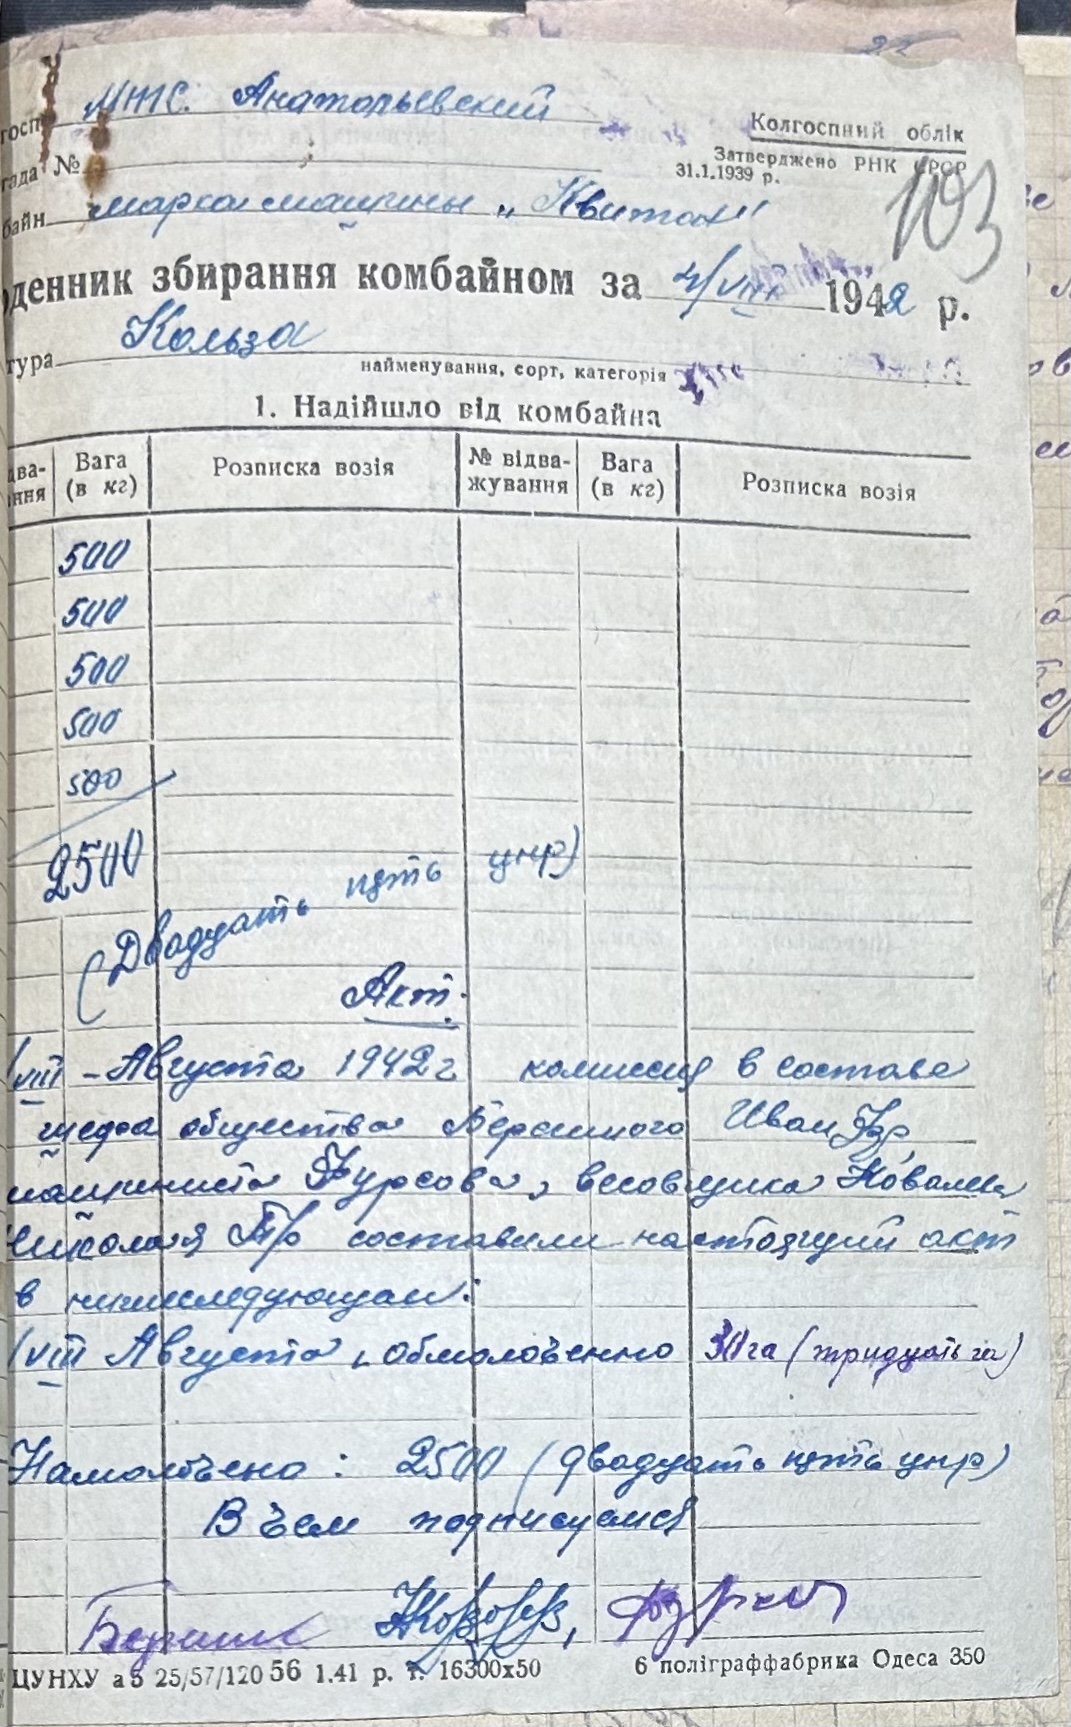 госп МТС. Анатольевский
Колгоспний облік
Затверджено РНК УРСР
31.1.1939 р.
ада №
103
байн марка машины „Квитах"
денник збирання комбайном за 4/VIII 1942 р.
тура Кользa
найменування, сорт, категорія
1. Надійшло від комбайна
два-
ння
Вага
(в кг)
Розписка возія
№ відва-
жування
Вага
(в кг)
Розписка возія
500
500
500
500
500
2500
(Двадцать пять цнр)
Акт.
/VIII – Августа 1942 г комисия в составе
шефа общества Бершиного Иван Гр,
машиниста Фурсова, весовщика Коваля
Николая Гр составили настоящий акт
в нижеследующем:
/VIII Августа, обмолоченно 30 га (тридцать га)
Намолочено: 2500 (двадцать пять цнр)
В чем подписуемся
ЦУНХУ а 5 25/57/120 56 1.41 р. т. 16300x50
6 поліграффабрика Одеса 350